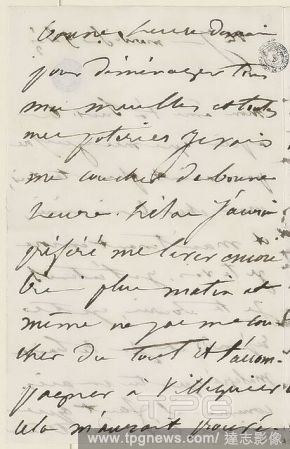 bonne heure demain
pour déménager tous
mes meubles et toutes
mes poteries je vais
me coucher de bonne
heure. hélas j'aurais
préféré me lever encore
plus matin et
même ne pas me cou-
cher du tout et t'accom-
pagner à Villequier
cela m'aurait
TPG
www.tpgnews.com / 達志影像